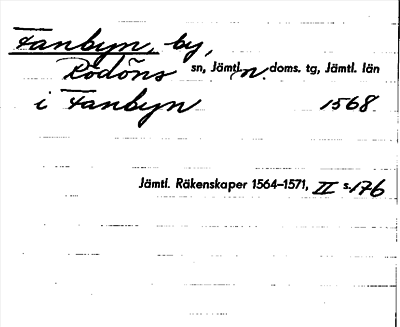 Fanbyn, by,
Rödöns sn, Jämtl. n. doms. tg, Jämtl. län
i Fanbyn 1568
Jämtl. Räkenskaper 1564–1571, II s. 176